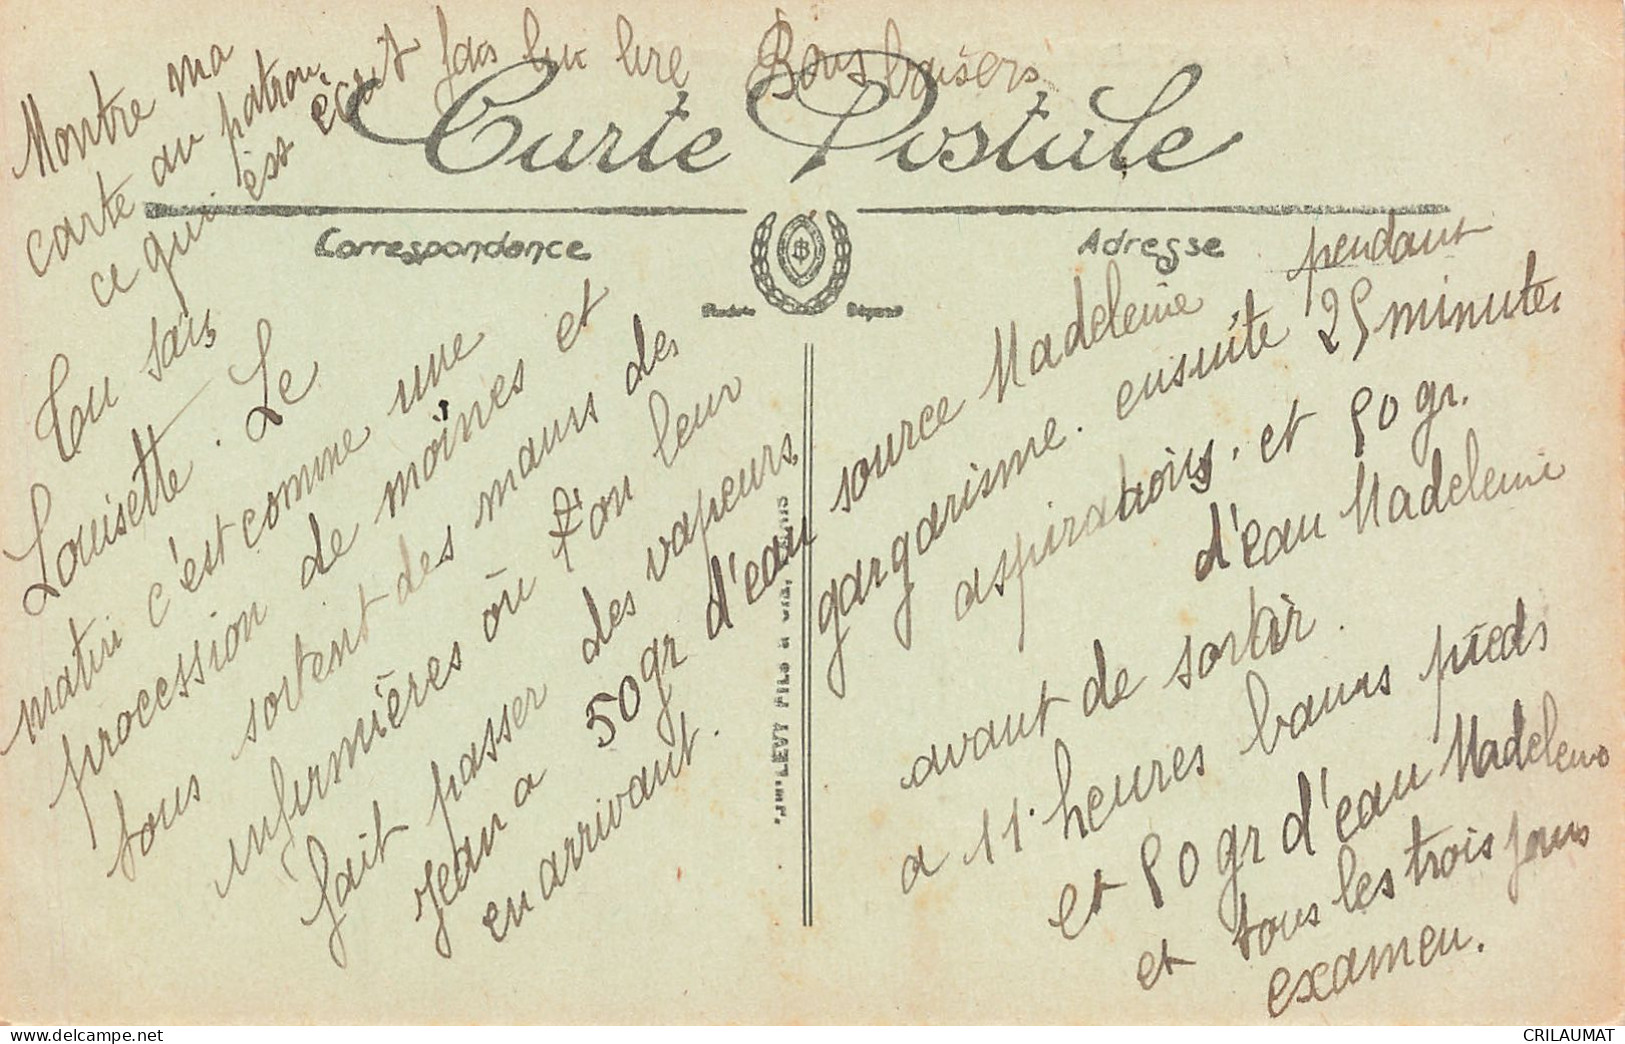 Montre ma
carte au patron
ce qui est écrit fais lui lire Bons baisers
Carte Postale
Correspondance
Adresse
Tu sais
Louisette. Le
matin c'est comme une
procession de moines et
tous sortent des mains des
infirmières où l'on leur
fait passer des vapeurs
Jean a 50gr d'eau
en arrivant.
source Madeleine pendant
gargarisme. ensuite 25 minutes
aspirations. et 50 gr.
d'eau Madeleine
avant de sortir.
a 11. heures bains pieds
et 50 gr d'eau Madeleine
et tous les trois jours
examen.
Imp. LEVY FILS &
CRILAUMAT